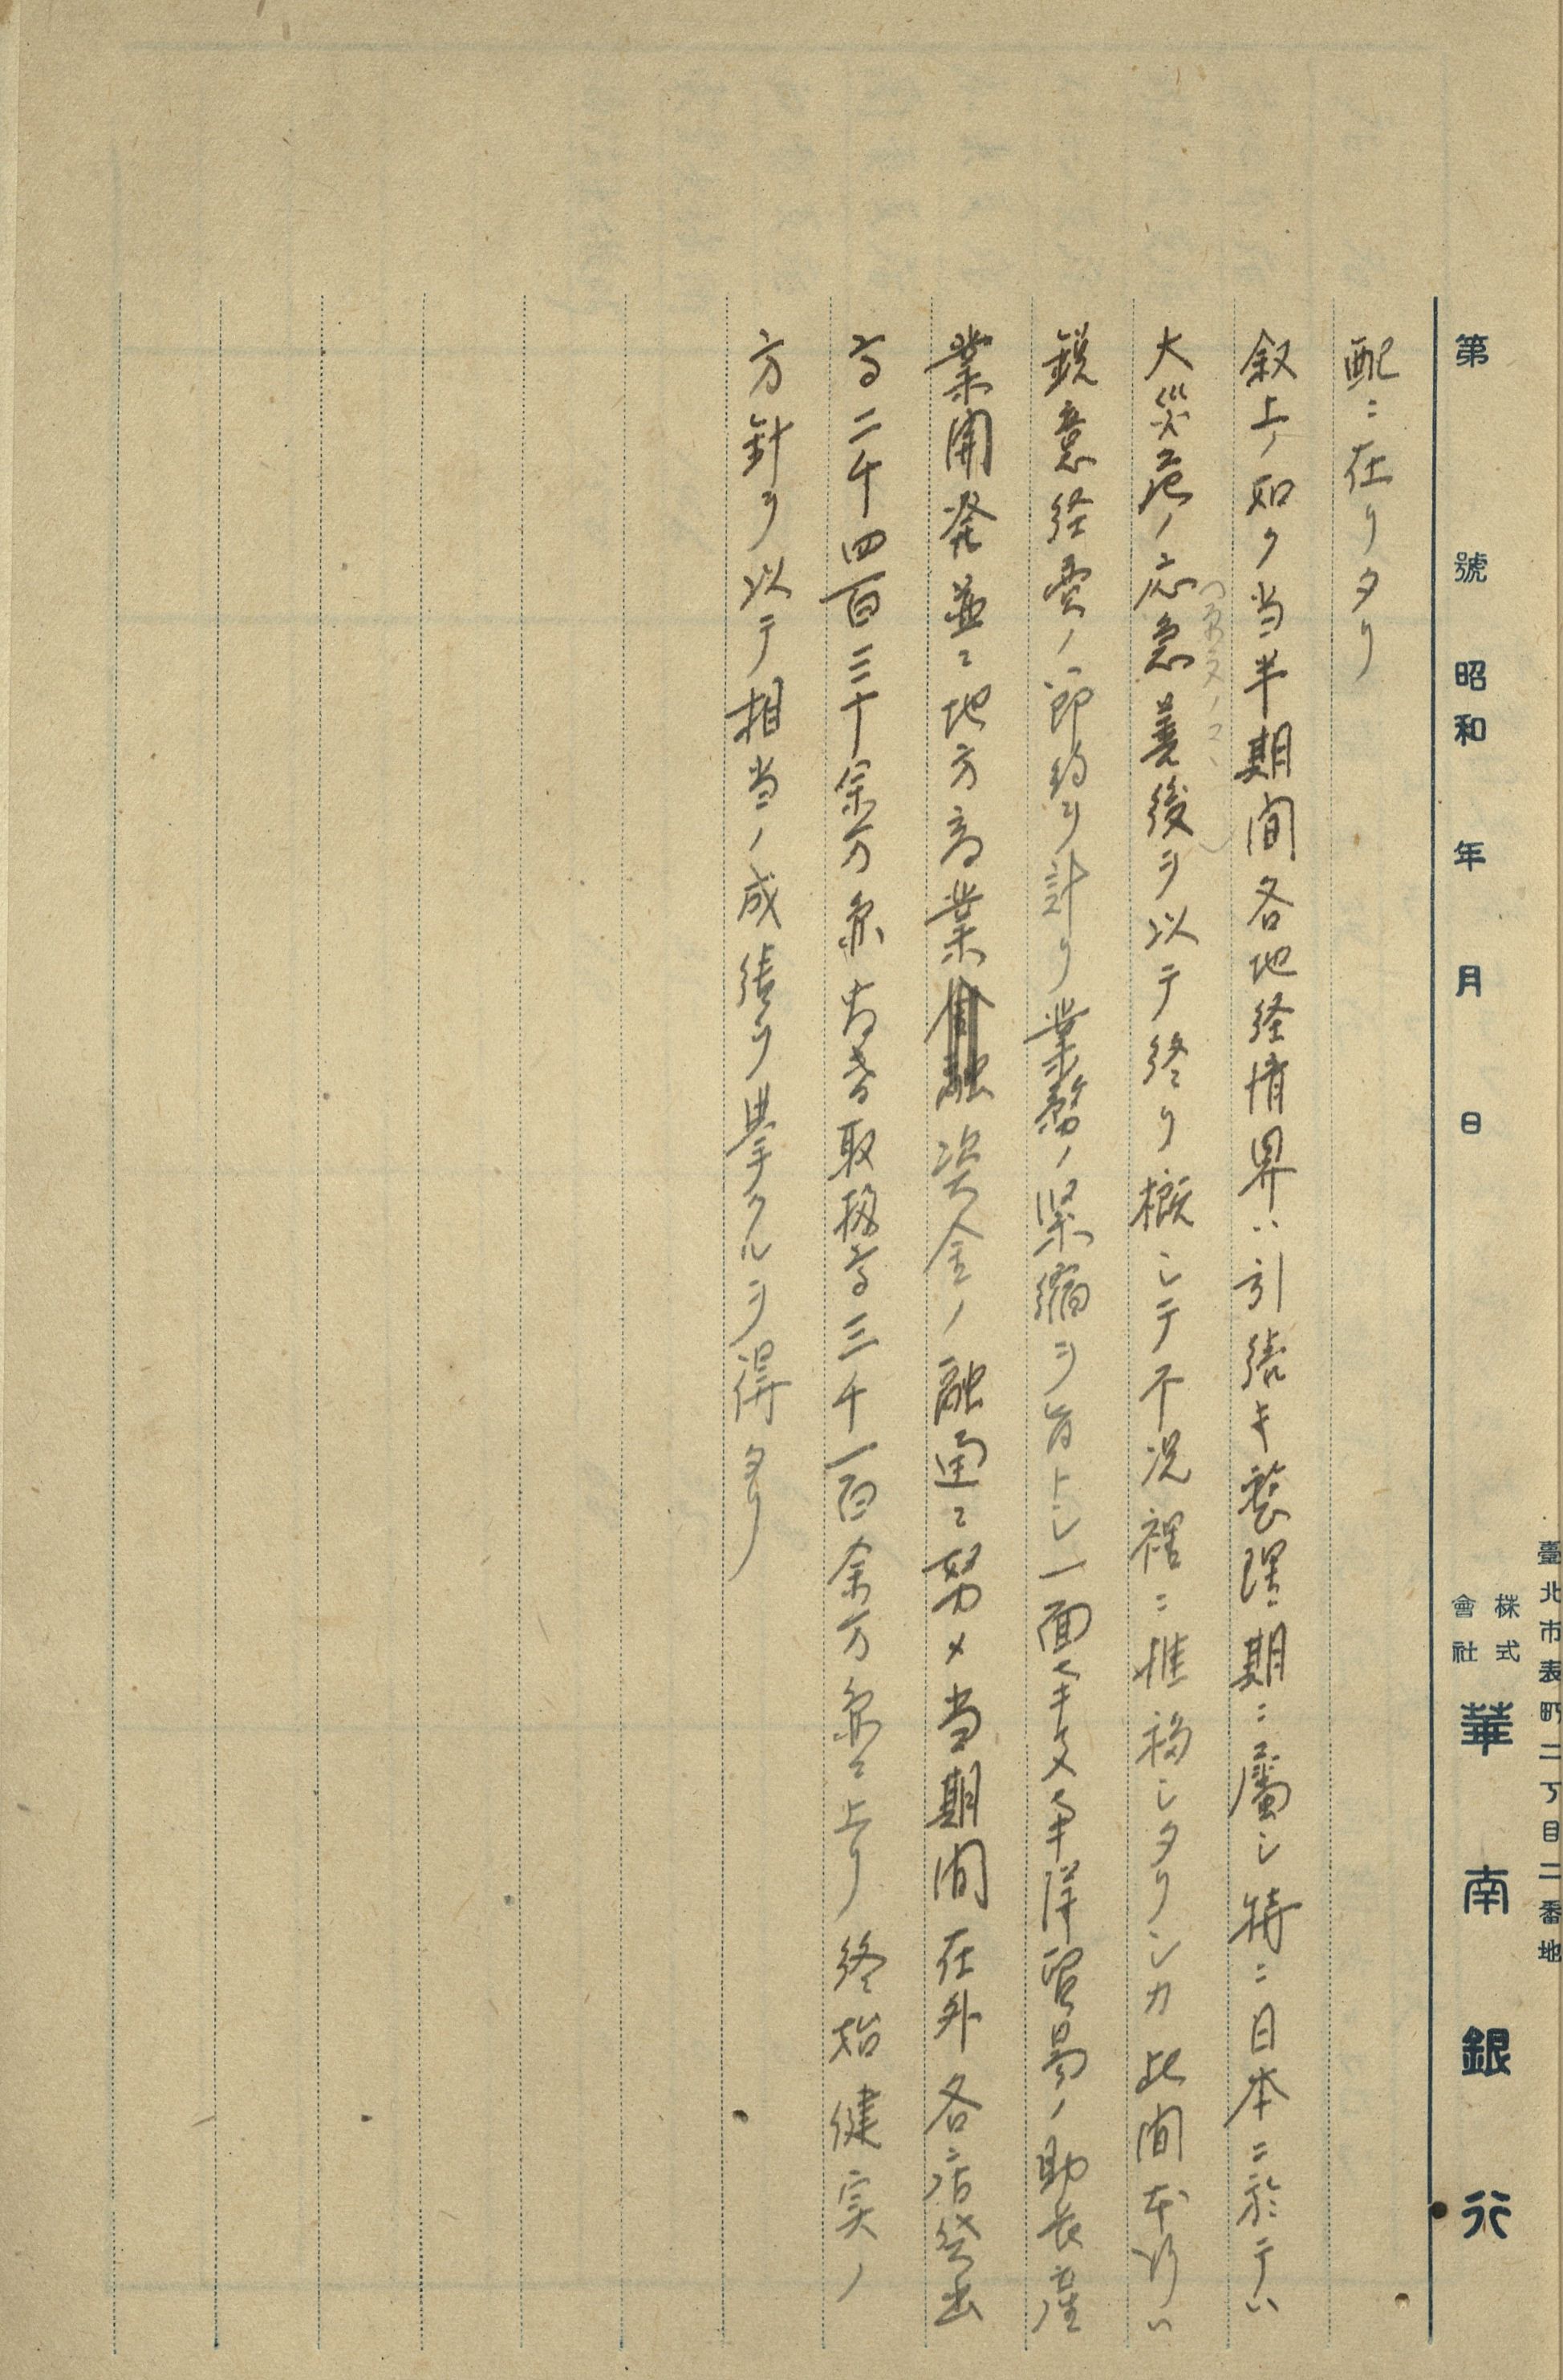 臺北市表町二丁目二番地
第 號 昭和 年 月 日 株式會社 華南銀行
配ニ在リタリ
叙上ノ如ク当半期間各地経済界ハ引続キ整理期ニ屬シ特ニ日本ニ於テハ
大災厄ノ応急善後ヲ以テ終リ概シテ不況裡ニ推移シタリシカ此間本行ハ
鋭意経費ノ節約ヲ計リ業務ノ緊縮ヲ旨トシ一面 洋貿易ノ助長産
業開発並ニ地方商業資金ノ融通ニ努メ当期間在外各店貸出
高二千四百三十余万 為替取扱高三千一百余万 ニ上リ終始健実ノ
方針ヲ以テ相当ノ成績ヲ挙クルヲ得タリ